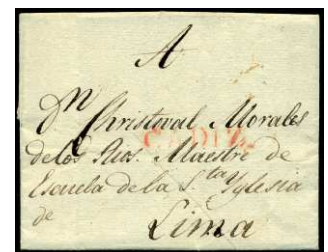 A
Dn Christoval Morales
CADIZ.
delos Rios. Maestre de
Escuela de la S.ta Yglesia
de
Lima